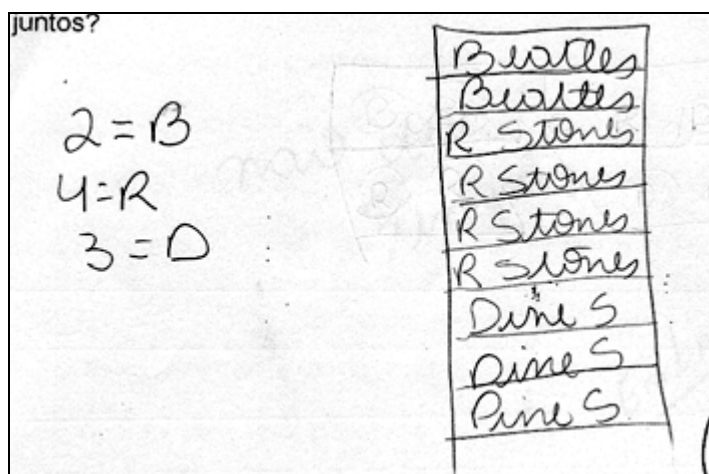 juntos?
2 = B
4 = R
3 = D
Beatles
Beattes
R Stones
R Stones
R Stones
R Stones
Dire S
Dire S
Dire S